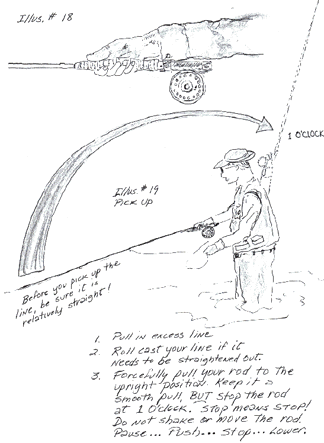 Illus. # 18
1 O'CLOCK
Illus. # 19
Pick Up
Before you pick up the
line, be sure it is
relatively straight!
1. Pull in excess line
2. Roll cast your line if it
needs to be straightened out.
3. Forcefully pull your rod to the
upright position. Keep it a
smooth pull, BUT stop the rod
at 1 O'clock. Stop means STOP!
Do not shake or move the rod.
Pause... Push... Stop... Lower.